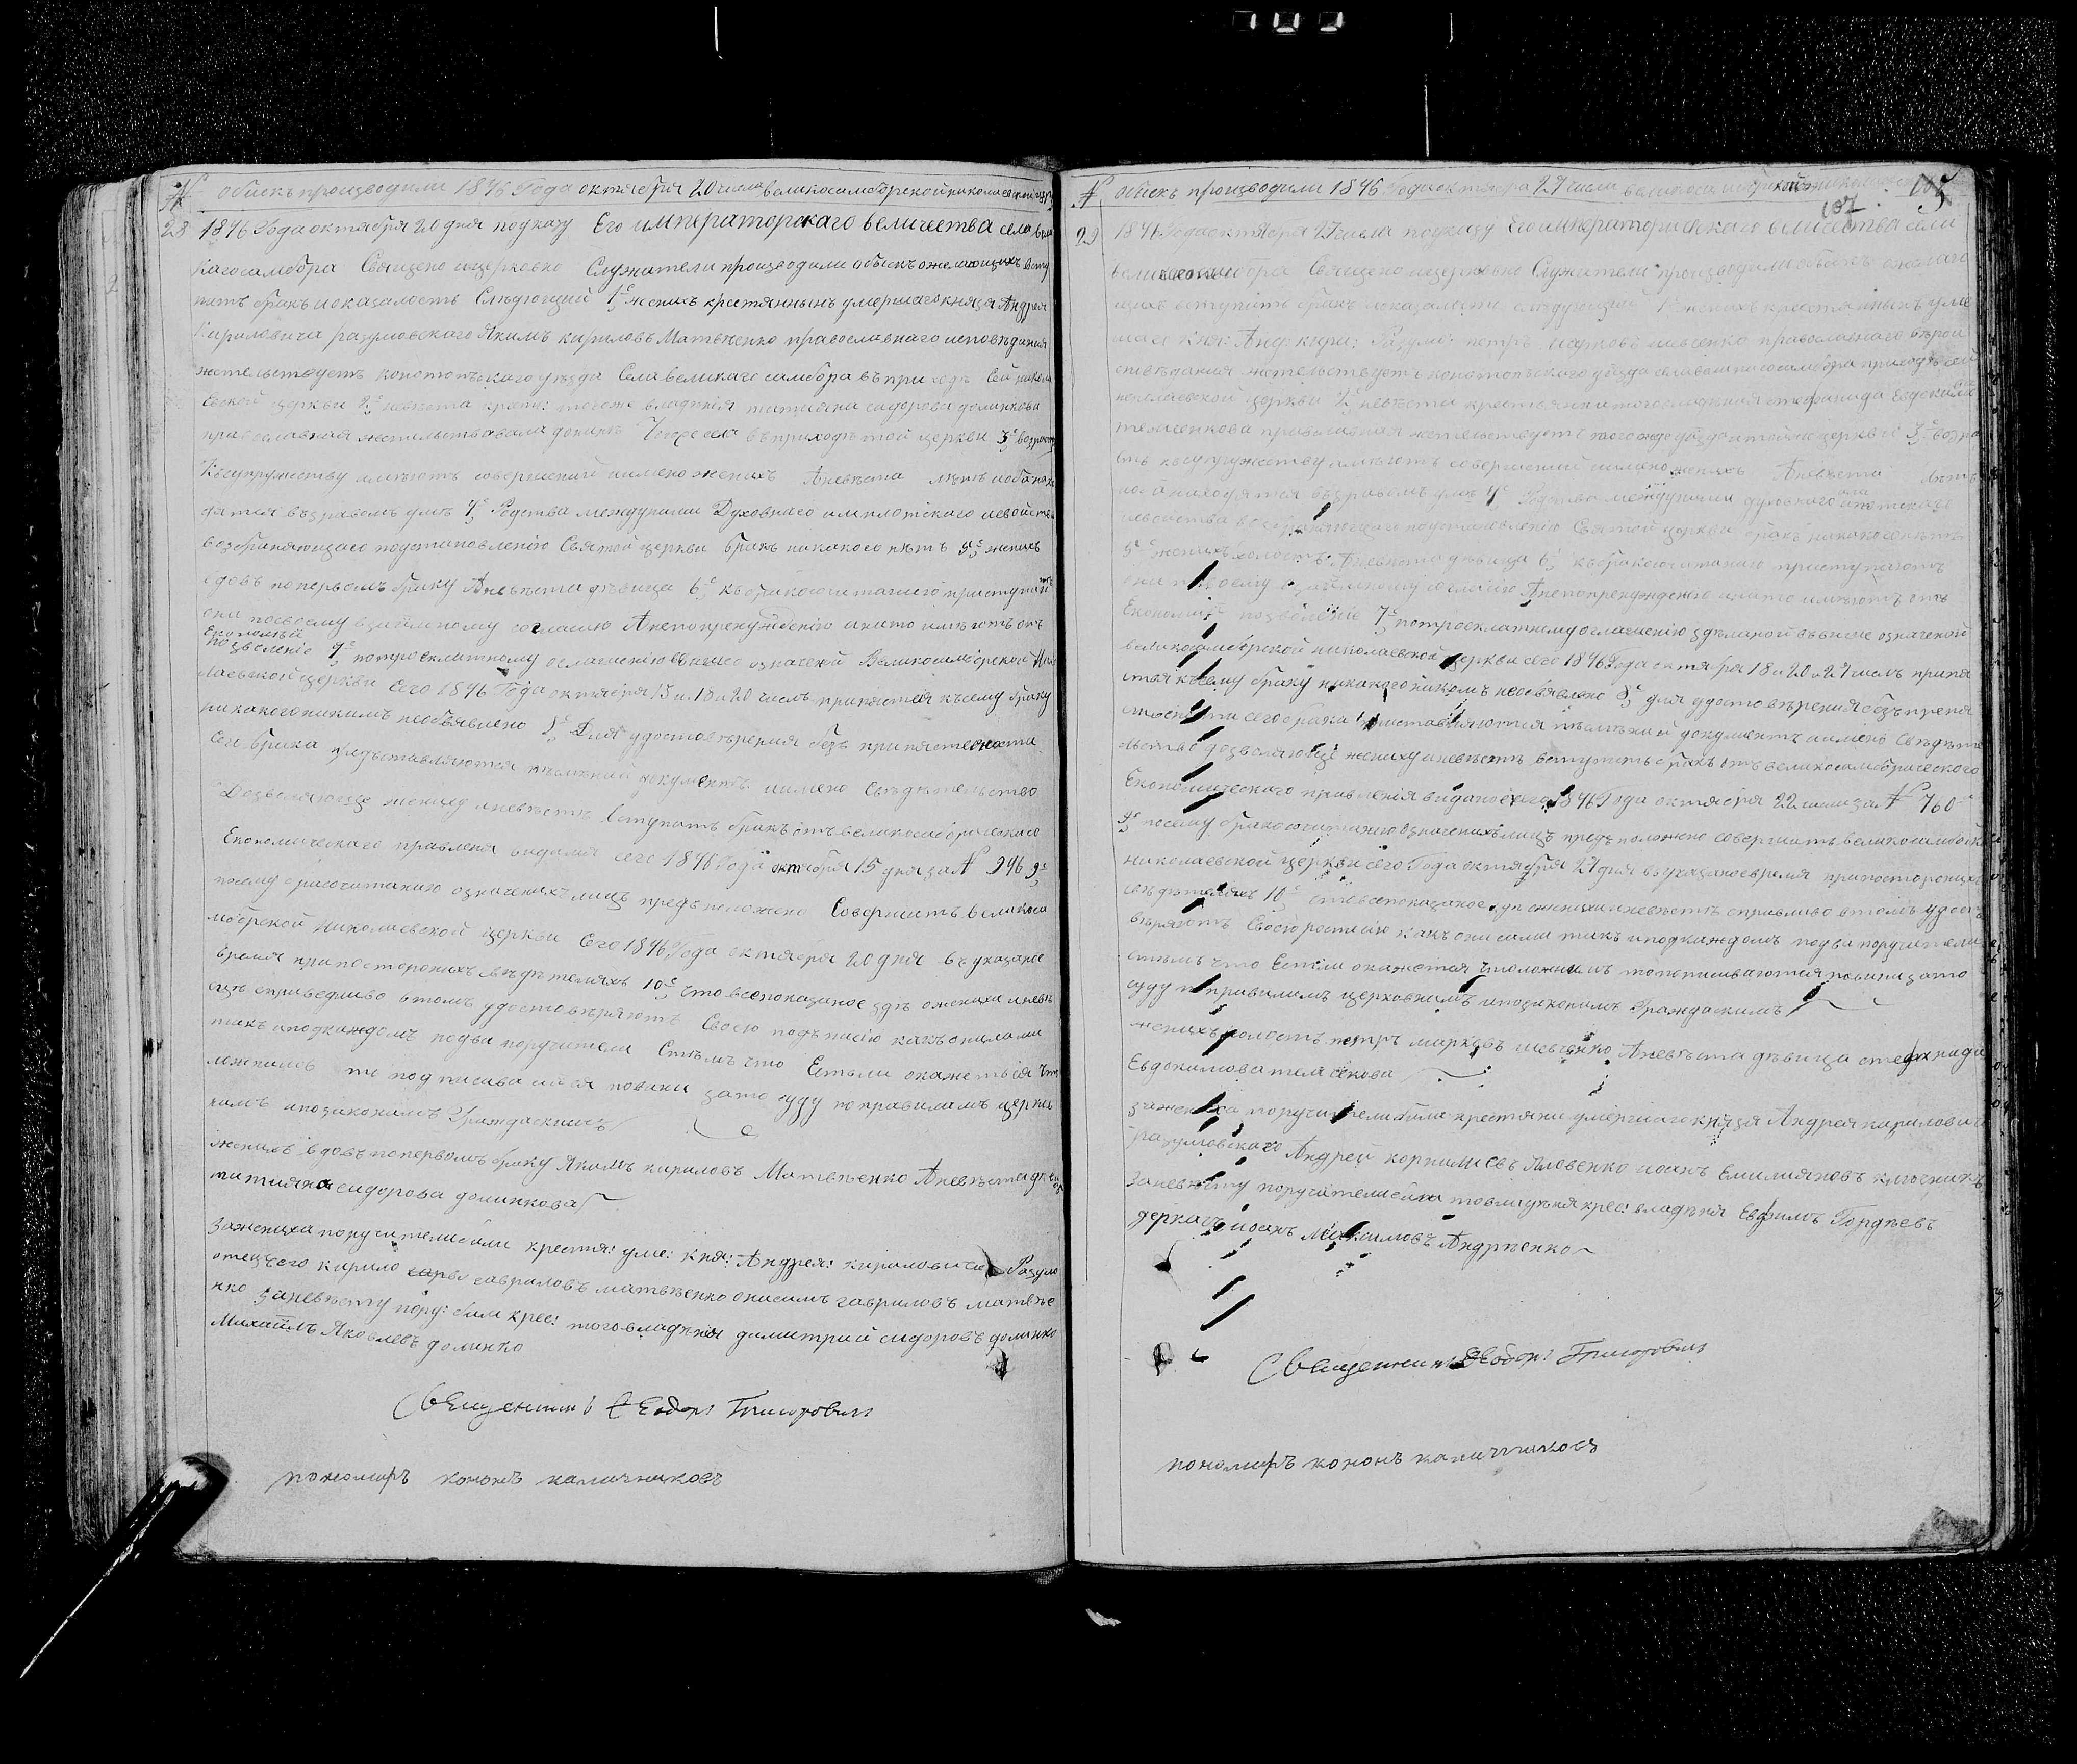 № обыскъ производили 1846 Года октября 20 числа великосамборской николаевской
28 1846 Года октября 20 дня поуказу Его императорскаго величества села вели
кагосамбора Священо ицерковно Служители производили обыскъ ожелающихъ всту
пить бракъ иоказалось Слѣдующий 1е женихъ крестянинъ умершаго князя Андрея
Кириловича разумовскаго Якимъ кириловъ Матвѣенко православнаго исповѣдания
жительствуетъ конотопскаго уѣзда Села великаго самбора въ приходѣ Сей никола
евской церкви 2е невѣста крест: тогоже владѣния татияна сидорова долинкова
православная жительствовала донинѣ Тогоже села въприходѣ той церкви 3е возрастъ
Ксупружеству имѣютъ совершений имено женихъ Аневѣста лѣтъ иоба нахо
дятся въздравомъ умѣ 4е Родства междуними Духовного иплотскаго исвойства
возбраняющаго поустановлению Святой церкви бракъ никакого нѣтъ 5е женихъ
вдовъ попервомъ браку Аневѣста дѣвица 6е кбракосочитанию приступаютъ
они посвоему взаимному согласию Анепопренуждению инато имѣютъ отъ
Економий
позволение 7е потроекратному оглашению ввишеозначеной Великосамборской Нико
лаевской церкви Сего 1846 Года октября 13 и 18 и 20 числъ припятствия къ сему браку
никакого никимъ необъявлено 8е Для удостовѣрения безъ припятствености
Сего брака представляются писмений документъ имено Свѣдѣтельство
Дозволяющее жениху иневѣстѣ вступить бракъ отъ великосамборскаго
Економическаго правления видания сего 1846 Года октября 15 дня за № 746 9е
посему бракосочитанию означенихъ лицъ предположено Совершить великоса
мборской николаевской церкви Сего 1846 Года октября 20 дня въ указаное
время припостороннихъ свѣдѣтеляхъ 10е что всепоказаное здѣ ожених иневѣ
стѣ справедливо втомъ удостовѣряютъ Своею подписию какъ онисами
такъ иподкаждомъ подва поручители Стѣмъ что Естьли окажеться что
ложнимъ то подписавшийся повини зато суду поправиламъ церков
нимъ изаконамъ Гражданскимъ
женихъ вдовъ попервомъ браку Якимъ кириловъ Матвѣенко Аневѣста дѣвица
татияна сидорова долинкова
Зажениха поручители били крестя: уме: княз: Андрея: кириловича Разумо
отецъего кирило гавриловъ матвѣенко онисимъ гавриловъ матвѣе
нко заневѣсту пору: били крес: тоговладѣния димитрий сидоровъ долинко
Михаилъ Яковлевъ долинко
Священникъ Феодоръ Григоровичъ
пономаръ кононъ калиниковъ
№ обыскъ производили 1846 Года октября 27 числа великосамборской николаевской 105
107
29 1846 Года октября 27 числа поуказу Его императорскаго величества села
великосамбора Священо ицерковно Служители производили обыскъ ожелаю
щихъ вступить бракъ иоказалось слѣдующий 1е женихъ крестянинъ уме
шаго Княз: Анд: кири: Разумо: петръ марковъ шевченко православнаго
исповѣдания жительствуетъ конотопскаго уѣзда села великосамбора приходѣ сей
николаевской церкви 2е невѣста крестьянка тоговладѣния стефанида Евдокимова
православная жительствуетъ того жде уѣзда итойже церкви 3е возра
стъ ксупружеству имѣютъ совершений имено женихъ Аневѣста лѣтъ
иоба находятся въздравомъ умѣ 4е Родства междуними духовного иплотскаго
исвойства возбраняющаго поустановлению Святой церкви бракъ никакого нѣтъ
5е женихъ холостъ Аневѣста дѣвица 6е кбракосочитанию приступаютъ
они посвоему взаимному согласию Анепопренуждению инато имѣютъ отъ
Економий позволение 7е потроекратному оглашению здѣланой въвише означеной
великосамборской николаевской церкви сего 1846 Года октября 18 и 20 и 27 числъ припя
ствия ксему браку никакого никимъ необявлено 8е для удостовѣрения безъ припя
ствености сего брака представляются писмений документъ имено Свѣдѣте
льство дозволяющее жениху иневѣстѣ вступить бракъ отъ великосамборского
Економического правления виданое сего 1846 Года октября 22 числа за № 760
9е посему бракосочитанию означенихъ лицъ предположено совершить великосамборск
николаевской церкви сего Года октября 27 дня въ указаноевремя припосторонихъ
свѣдѣтеляхъ 10е что всепоказаное здѣ ожених иневѣстѣ справливо втомъ удост
вѣряютъ Своею росписию какъ они сами такъ иподкаждомъ подва поручители
стѣмъ что Естьли окажется что ложнимъ то подписавшийся повини зато
суду поправиламъ церковнимъ ипозаконамъ Гражданскимъ
женихъ холостъ петръ марковъ шевченко Аневѣста дѣвица стефанида
Евдокимова
зажениха поручители били крестяни умершаго князя Андрея кириловича
разумовскаго Андрей корнилиевъ Яловенко иоанъ Емилияновъ ключникъ
Заневѣсту поручители били тоговладѣния крес: владѣния Евфимъ Гордѣевъ
деркачъ иоанъ Максимовъ Андрѣенко
Священникъ Феодоръ Григоровичъ
пономаръ кононъ калиниковъ